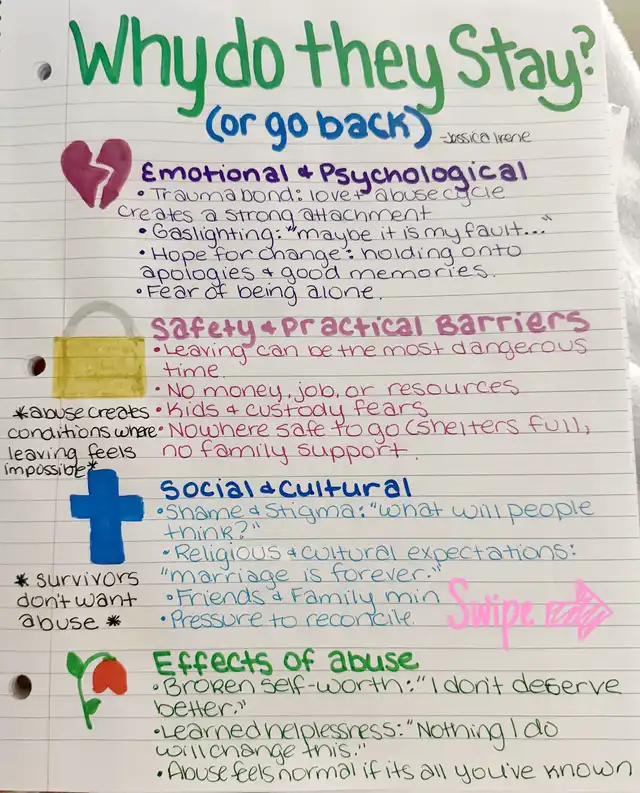 Why do they Stay?
(or go back)
-Jessica Irene
Emotional & Psychological
• Trauma bond: love + abuse cycle
creates a strong attachment
• Gaslighting: "maybe it is my fault..."
• Hope for change: holding onto
apologies & good memories.
• Fear of being alone.
Safety & Practical Barriers
• Leaving can be the most dangerous
time.
• No money, job, or resources
• Kids & custody fears
• Nowhere safe to go (shelters full,
no family support.
*abuse creates
conditions where
leaving feels
impossible*
Social & Cultural
• Shame & Stigma: "what will people
think?"
• Religious & cultural expectations:
"marriage is forever."
• Friends & Family min
• Pressure to reconcile.
* survivors
don't want
abuse *
Swipe
Effects of abuse
• Broken self-worth: "I don't deserve
better."
• Learned helplessness: "Nothing I do
will change this."
• Abuse feels normal if its all you've known